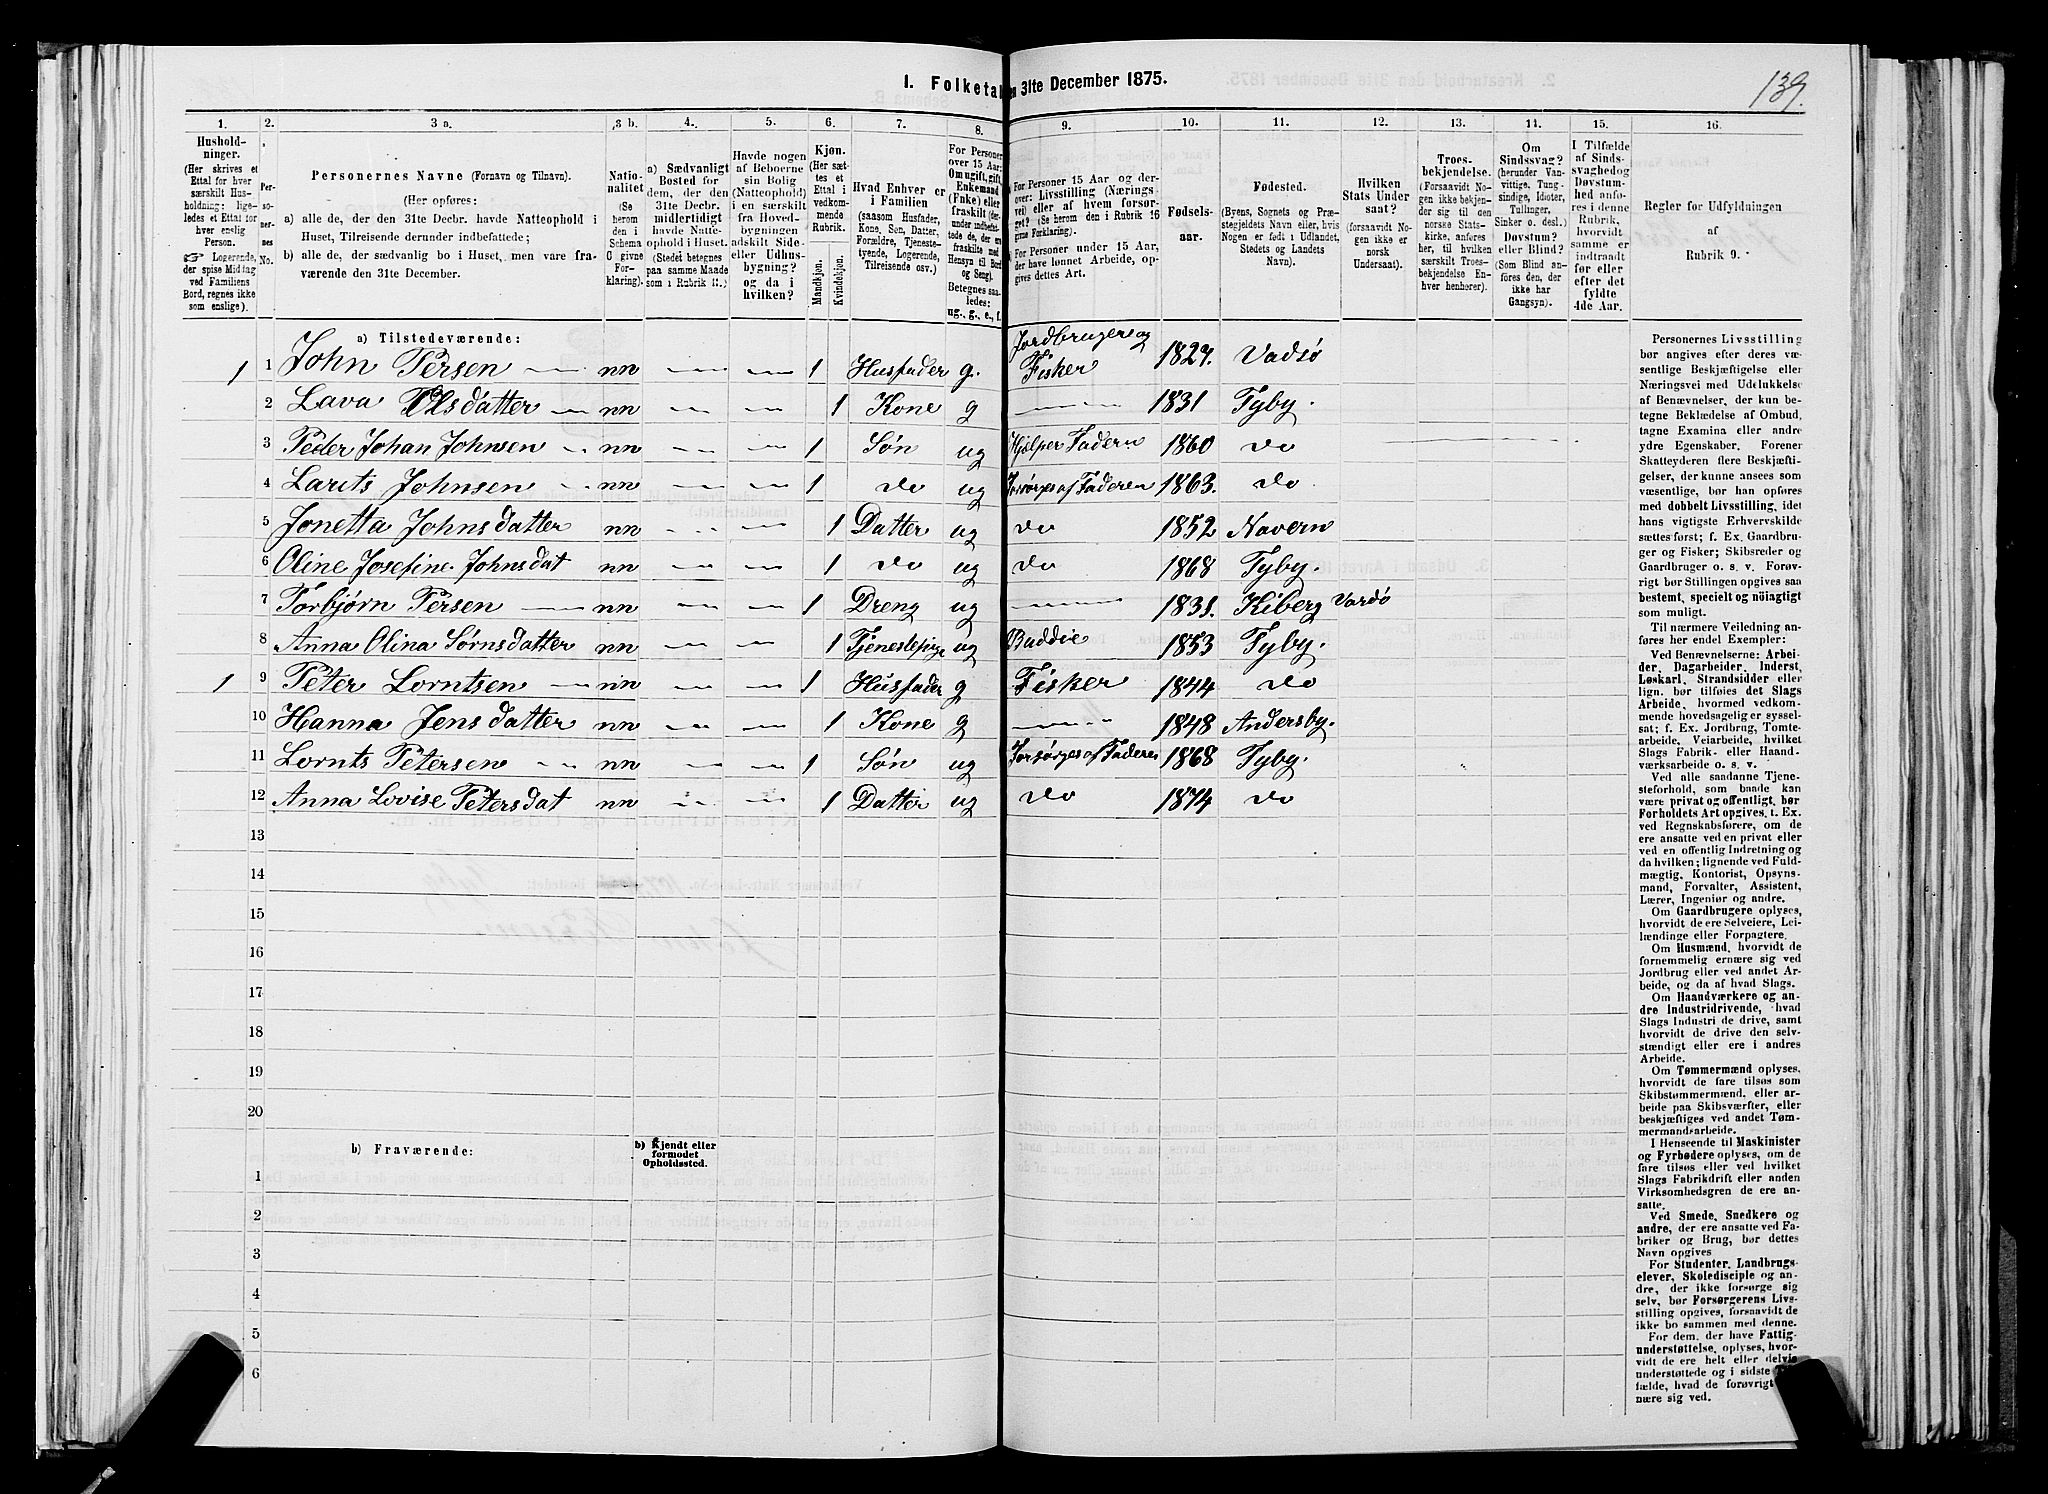 I. Folketal en 31te December 1875.
139.
1.
Husholdninger.
(Her skrives et
Ettal for hver
særskilt Husholdning;
ligeledes et Ettal for
hver enslig
Person.
☞ Logerende,
der spise Middag
ved Familiens
Bord, regnes ikke
som enslige).
2.
Personernes
No.
3 a.
Personernes Navne (Fornavn og Tilnavn).
(Her opføres:
a) alle de, der den 31te Decbr. havde Natteophold i
Huset, Tilreisende derunder indbefattede;
b) alle de, der sædvanlig bo i Huset, men vare fraværende
den 31te December.
3 b.
Nationalitet
(Se
herom
den i
Schema
C givne
Forklaring).
4.
a) Sædvanligt
Bosted for
dem, der den
31te Decbr.
midlertidigt
havde Natteophold
i Huset.
(Stedet betegnes
paa samme Maade
som i Rubrik 11.)
5.
Havde nogen
af Beboerne
sin Bolig
(Natteophold)
i en særskilt
fra Hovedbygningen
adskilt Side-
eller Udhusbygning?
og da i
hvilken?
6.
Kjøn.
(Her sættes
et
Ettal i
vedkommende
Rubrik.
Mandkjøn.
Kvindekjøn.
7.
Hvad Enhver er
i Familien
(saasom Husfader,
Kone, Søn, Datter,
Forældre, Tjenestetyende,
Logerende,
Tilreisende osv.)
8.
For Personer
over 15 Aar:
Om ugift, gift,
Enkemand
(Enke) eller
fraskilt (derunder
indbefattede,
der ere
fraskilte med
Hensyn til Bord
og Seng).
Betegnes saaledes:
ug., g., e., f.
9.
For Personer 15 Aar og derover:
Livsstilling (Næringsvei)
eller af hvem forsørget?
(Se herom i Rubrik 16
givne Forklaring).
For Personer under 15 Aar,
der have lønnet Arbeide, opgives
dettes Art.
10.
Fødselsaar.
11.
Fødested.
(Byens, Sognets og Præstegjeldets
Navn, eller, hvis
Nogen er født i Udlandet,
Stedets og Landets
Navn).
12.
Hvilken
Stats Undersaat?
(forsaavidt Nogen
ikke er
norsk
Undersaat).
13.
Troesbekjendelse.
(Forsaavidt Nogen
ikke bekjender
sig til den
norske Statskirke,
anføres
her, til hvilken
særskilt Troesbekjendelse
Enhver
henhører).
14.
Om
Sindssvag?
(herunder Vanvittige,
Tungsindige,
Idioter,
Tullinger,
Sinker o. desl.)
Døvstum?
eller Blind?
(Som Blind anføres
den, der
ikke har
Gangsyn).
15.
I Tilfælde
af Sindssvaghed
og
Døvstumhed
anføres
i denne
Rubrik,
hvorvidt
samme er
indtraadt
før eller
efter det
fyldte
4de Aar.
16.
Regler for Udfyldningen
af
Rubrik 9.
a) Tilstedeværende:
1 1 John Persen nn 1 Husfader g. Jordbruger og Fisker 1827. Vadsø
2 Lava Olsdatter nn 1 Kone g 1831 Tyby.
3 Peder Johan Johnsen nn 1 Søn ug Hjælper Faderen 1860 do
4 Larits Johnsen nn 1 do ug Forsørges af Faderen 1863. do
5 Jonetta Johnsdatter nn 1 Datter ug do 1852 Navern
6 Oline Josefine Johnsdat nn 1 do ug do 1868 Tyby.
7 Torbjørn Persen nn 1 Dreng ug 1831. Kiberg Vardø
8 Anna Olina Sørnsdatter nn 1 Tjenestepige ug Buddeie 1853 Tyby.
1 9 Peter Lorntsen nn 1 Husfader g Fisker 1844 do
10 Hanna Jensdatter nn 1 Kone g 1848 Andersby.
11 Lornts Petersen nn 1 Søn ug Forsørges af Faderen 1868 Tyby.
12 Anna Lovise Petersdat nn 1 Datter ug do 1874 do
13
14
15
16
17
18
19
20
b) Fraværende:
b) Kjendt eller
formodet
Opholdssted.
1
2
3
4
5
6
Personernes Livsstilling
bør angives efter deres væsentlige
Beskjæftigelse eller
Næringsvei med Udelukkelse
af Benævnelser, der kun betegne
Beklædelse af Ombud,
tagne Examina eller andre
ydre Egenskaber. Forener
Skatteyderen flere Beskjæftigelser,
der kunne ansees som
væsentlige, bør han opføres
med dobbelt Livsstilling, idet
hans vigtigste Erhvervskilde
sættes først; f. Ex. Gaardbruger
og Fisker; Skibsreder og
Gaardbruger o. s. v. Forøvrigt
bør Stillingen opgives saa
bestemt, specielt og nöiagtigt
som muligt.
Til nærmere Veiledning anføres
her endel Exempler:
Ved Benævnelserne: Arbeider,
Dagarbeider, Inderst,
Løskarl, Strandsidder eller
lign. bør tilføies det Slags
Arbeide, hvormed vedkommende
hovedsagelig er sysselsat;
f. Ex. Jordbrug, Tomtearbeide,
Veiarbeide, hvilket
Slags Fabrik- eller Haandværksarbeide
o. s. v.
Ved alle saadanne Tjenesteforhold,
som baade kan
være privat og offentligt, bør
Forholdets Art opgives, t. Ex.
ved Regnskabsførere, om de
ere ansatte ved en privat eller
ved en offentlig Indretning og
da hvilken; lignende ved Fuldmægtig,
Kontorist, Opsynsmand,
Forvalter, Assistent,
Lærer, Ingeniør og andre.
Om Gaardbrugere oplyses,
hvorvidt de ere Selveiere, Leilændinge
eller Forpagtere.
Om Husmænd, hvorvidt de
fornemmelig ernære sig ved
Jordbrug eller ved andet Arbeide,
og da af hvad Slags.
Om Haandværkere og andre
Industridrivende, hvad
Slags Industri de drive, samt
hvorvidt de drive den selvstændigt
eller ere i andres
Arbeide.
Om Tømmermænd oplyses,
hvorvidt de fare tilsøs som
Skibstømmermænd, eller arbeide
paa Skibsværfter, eller
beskjæftiges ved andet Tømmermandsarbeide.
I Henseende til Maskinister
og Fyrbødere oplyses, om de
fare tilsøs eller ved hvilket
Slags Fabrikdrift eller anden
Virksomhedsgren de ere ansatte.
Ved Smede, Snedkere og
andre, der ere ansatte ved Fabriker
og Brug, bør dettes
Navn opgives
For Studenter, Landbrugselever,
Skoledisciple og andre,
der ikke forsørge sig
selv, bør Forsørgerens Livsstilling
opgives, forsaavidt de
ikke bo sammen med denne.
For dem, der have Fattigunderstøttelse,
oplyses, hvorvidt
de ere helt eller delvis
understøttede og i sidste Tilfælde,
hvad de forøvrigt ernære
sig ved.